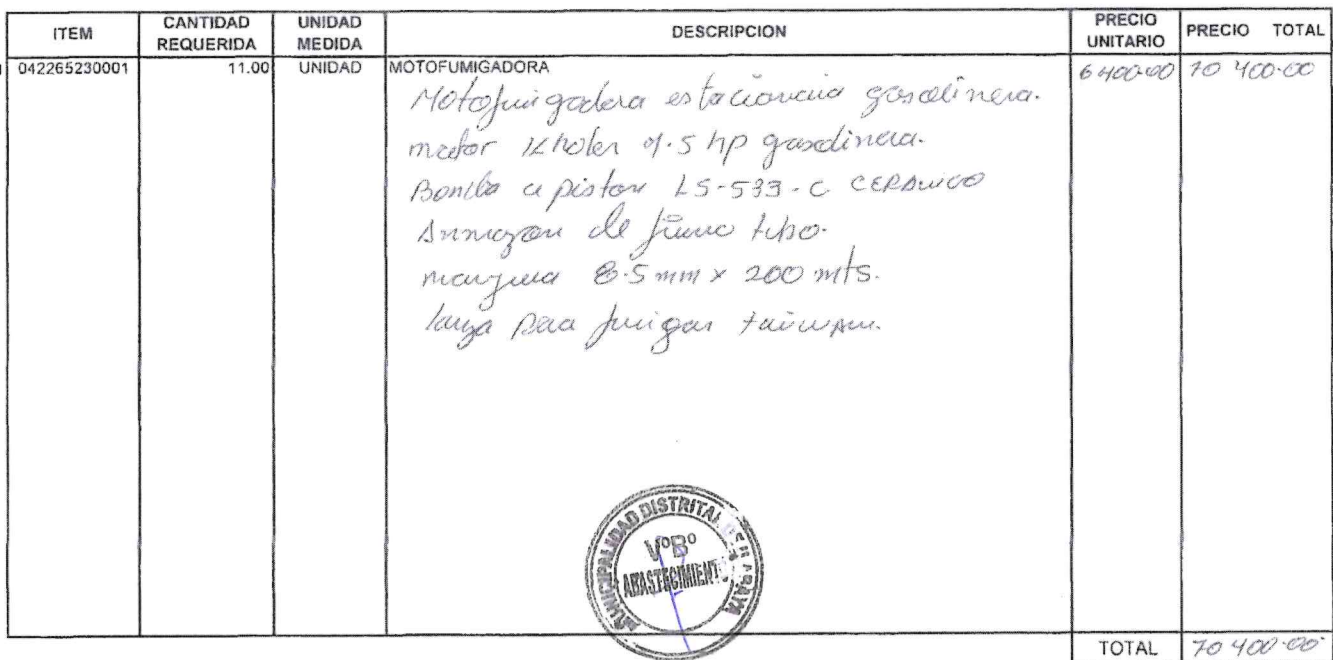 ITEM CANTIDAD REQUERIDA UNIDAD MEDIDA DESCRIPCION PRECIO UNITARIO PRECIO TOTAL
042265230001 11.00 UNIDAD MOTOFUMIGADORA 6400.00 70 400.00
Motofuigadora estacionaria gasolinera.
motor Kholer 9.5 hp gasolinera.
Bomba a piston LS-533-C CERAMICO
Armazon de fierro tubo.
manguera 8.5 mm x 200 mts.
lanza para fumigar taiwan.
MUNICIPALIDAD DISTRITAL DE
VºBº
ABASTECIMIENTO
TOTAL 70 400.00